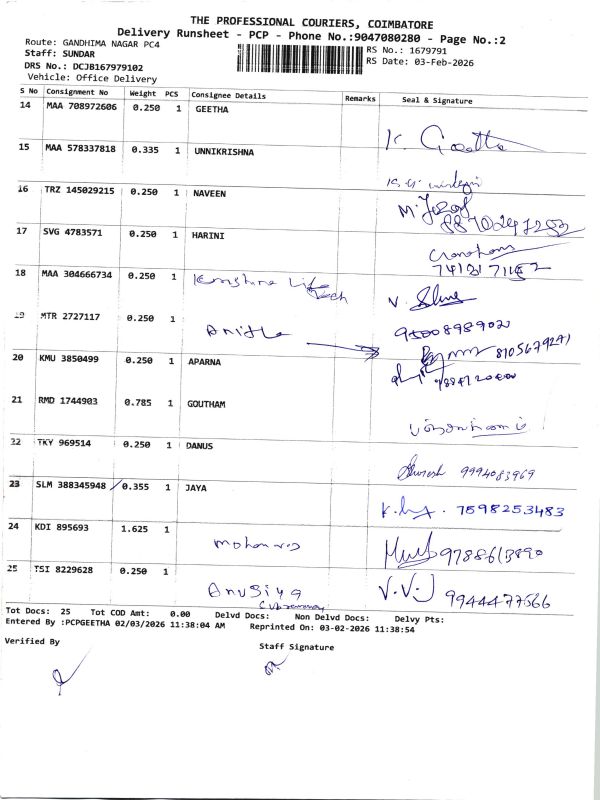 THE PROFESSIONAL COURIERS, COIMBATORE
Delivery Runsheet - PCP - Phone No.:9047080280 - Page No.:2
Route: GANDHIMA NAGAR PC4
RS No.: 1679791
Staff: SUNDAR
RS Date: 03-Feb-2026
DRS No.: DCJB167979102
Vehicle: Office Delivery
S No Consignment No Weight PCS Consignee Details Remarks Seal & Signature
14 MAA 708972606 0.250 1 GEETHA K. Geetha
15 MAA 578337818 0.335 1 UNNIKRISHNA
16 TRZ 145029215 0.250 1 NAVEEN
17 SVG 4783571 0.250 1 HARINI
7412171152
18 MAA 304666734 0.250 1 Life Tech V.
19 MTR 2727117 0.250 1 Anitha
8105679271
20 KMU 3850499 0.250 1 APARNA
21 RMD 1744903 0.785 1 GOUTHAM
22 TKY 969514 0.250 1 DANUS
9994083969
23 SLM 388345948 0.355 1 JAYA 7598253483
24 KDI 895693 1.625 1
25 TSI 8229628 0.250 1 Anusiya V.V.J 9944477566
Tot Docs: 25 Tot COD Amt: 0.00 Delvd Docs: Non Delvd Docs: Delvy Pts:
Entered By :PCPGEETHA 02/03/2026 11:38:04 AM Reprinted On: 03-02-2026 11:38:54
Verified By
Staff Signature